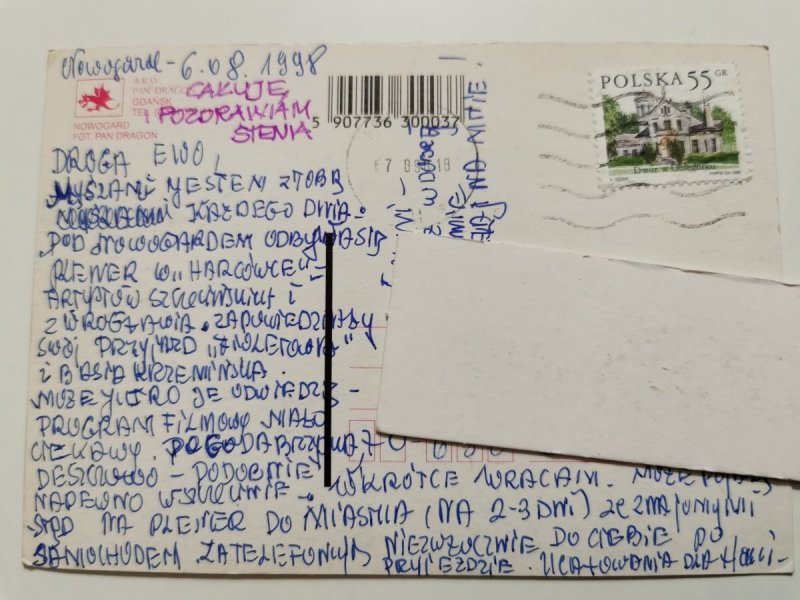 Nowogard - 6.08.1998
A.R.W.
PAN DRAGON
GDAŃSK
TEL
NOWOGARD
FOT. PAN DRAGON
CAŁUJĘ,
I POZDRAWIAM
SIENIA
5 907736 300037
POLSKA 55 GR
Dwór w Oblęgorku
DROGA EWO,
MYŚLAMI JESTEM Z TOBĄ
KAŻDEGO DNIA.
POD NOWOGARDEM ODBYWA SIĘ
PLENER W "HARCÓWCE" -
ARTYSTÓW SZCZECIŃSKICH I
Z WROCŁAWIA. ZAPOWIEDZIAŁY
SWÓJ PRZYJAZD "FIOLETOWA"
I BASIA KRZEMIŃSKA.
MOŻE JUTRO JE ODWIEDZĘ -
PROGRAM FILMOWY MAŁO
CIEKAWY. POGODA BRZYDKA,
DESZCZOWO - PODOBNIE
NAPEWNO W SZCZECINIE. WKRÓTCE WRACAM. MOŻE
STĄD NA PLENER DO MIASTKA (NA 2-3 DNI) ZE ZNAJOMYMI
SAMOCHODEM. ZATELEFONUJĘ NIEZWŁOCZNIE DO CIEBIE PO
PRZYJEŹDZIE. UCAŁOWANIA DLA